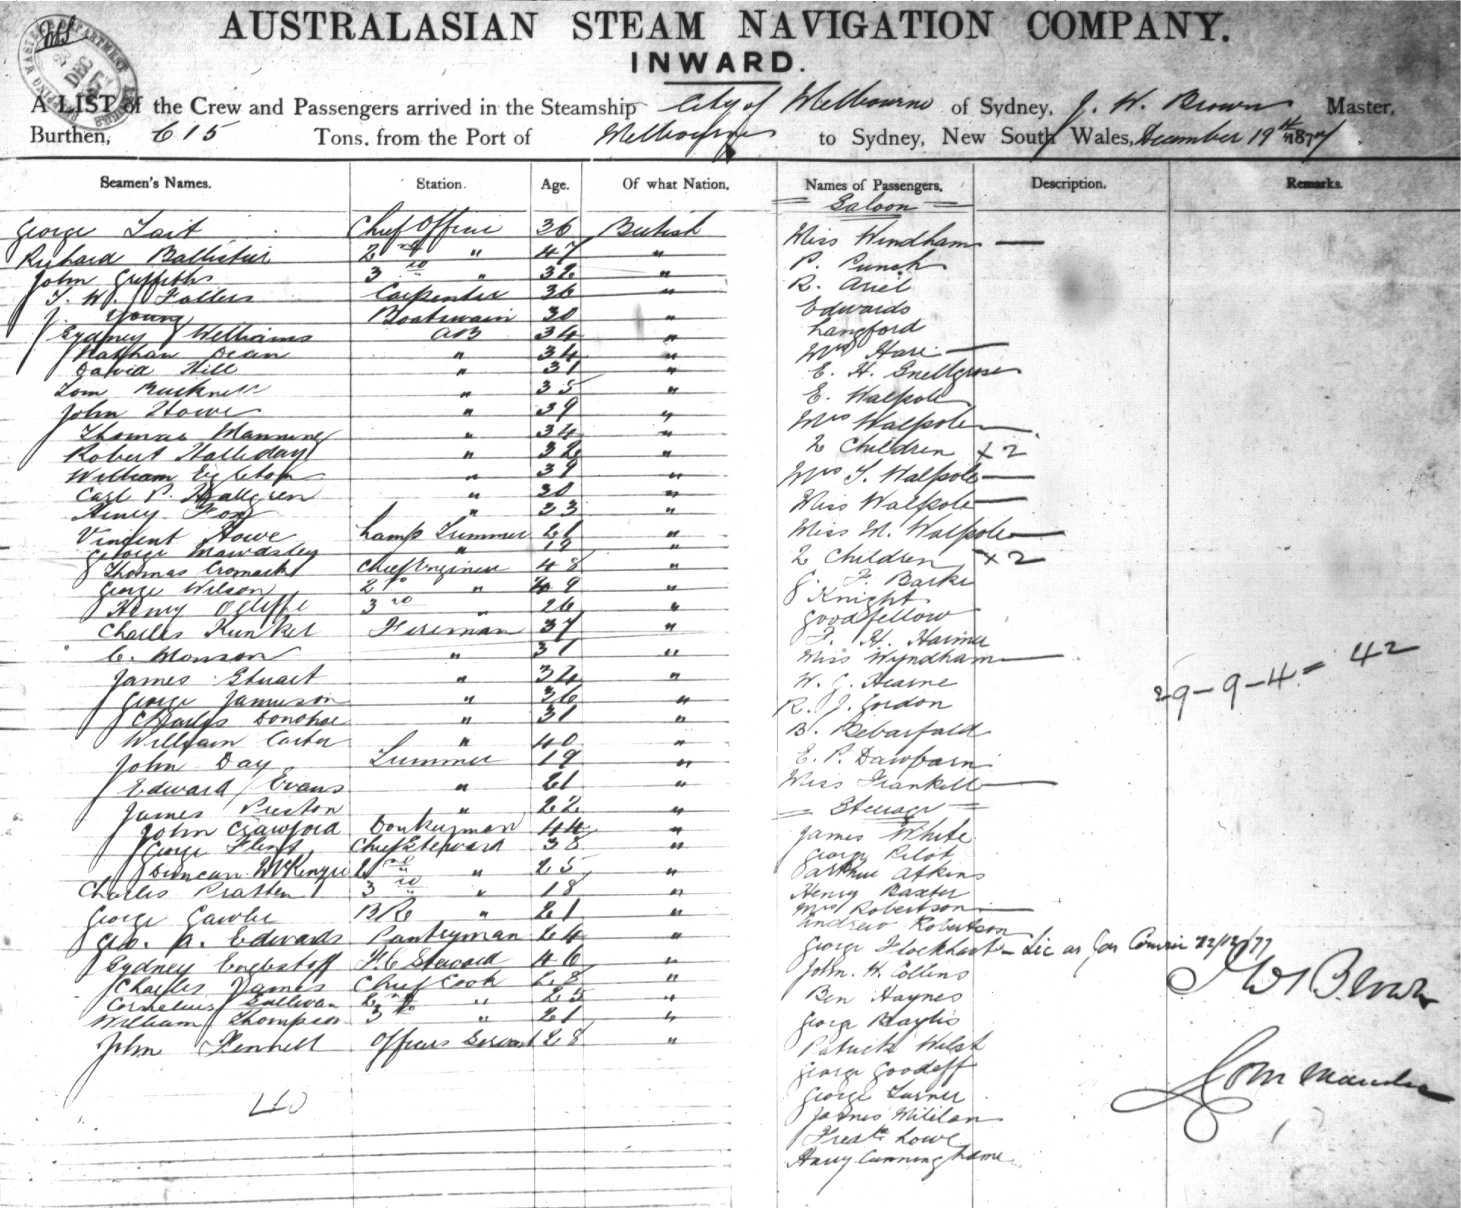 AUSTRALASIAN STEAM NAVIGATION COMPANY.
INWARD.
A LIST of the Crew and Passengers arrived in the Steamship City of Melbourne of Sydney, J. W. Brown Master,
Burthen, 615 Tons, from the Port of Melbourne to Sydney, New South Wales, December 19th 1877
Seamen's Names. Station. Age. Of what Nation.
George Tait Chief Officer 36 British
Richard 2nd " 47 "
John Griffiths 3rd " 32 "
T. W. Carpenter 36 "
J. Young Boatswain 30 "
Sydney Williams AB 34 "
Nathan Dean " 34 "
David Hill " 31 "
Tom Bucknell " 35 "
John Howe " 39 "
Thomas Manning " 34 "
Robert Halliday " 32 "
William Egleton " 39 "
Carl P. Hallgren " 30 "
Henry Fox " 33 "
Vincent Howe Lamp Trimmer 21 "
George Mawdsley " 19 "
Thomas Cromack Chief Engineer 48 "
George Wilson 2nd " 49 "
Henry Ogliffe 3rd " 26 "
Charles Kunkel Fireman 37 "
C. Monson " 31 "
James Stuart " 34 "
George Jamieson " 36 "
Charles Donohoe " 31 "
William Carter " 40 "
John Day Trimmer 19 "
Edward Evans " 21 "
James Preston " 22 "
John Crawford Donkeyman 44 "
George Flint Chief Steward 38 "
Duncan McKenzie 2nd " 25 "
Charles Pratten 3rd " 18 "
George Gawler " 21 "
Geo. A. Edwards Pantryman 24 "
Sydney F.C. Steward 46 "
Charles James Chief Cook 28 "
Cornelius Sullivan 2nd " 25 "
William Thompson 3rd " 21 "
John Fennell Officers Servant 28 "
40
Names of Passengers. Description. Remarks.
Saloon
Miss Windham
P. Punch
R. Ariel
Edwards
Langford
Mrs Hare
E. H. Snellgrove
E. Walpole
Mrs Walpole
2 Children x 2
Mrs T. Walpole
Miss Walpole
Miss M. Walpole
2 Children x 2
G. F. Barke
Knight
Goodfellow
Miss Wyndham
W. J. Hearne
R. J. Gordon
E. P. Dawbarn
Miss
Steerage
James White
George Pilot
Arthur Atkins
Henry Baxter
Mrs Robertson
Andrew Robertson
George Flockhart
John H. Collins
Ben Haynes
George Baylis
Patrick
George Goodeff
George Turner
James
Fredk Lowe
Harry Cunninghame
29-9-4 = 42
22/12/77
J W Brown
Commander